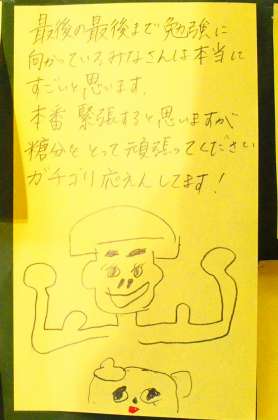 最後の最後まで勉強に
向かっているみなさんは本当に
すごいと思います。
本番 緊張すると思いますが
糖分をとって頑張ってください
ガチゴリ応えんしてます!